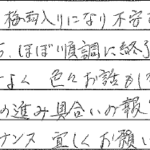 梅雨入りになり不安
ら、ほぼ順調に終了
よく 色々お話がで
の進み具合いの報
ナンス 宜しくお願い